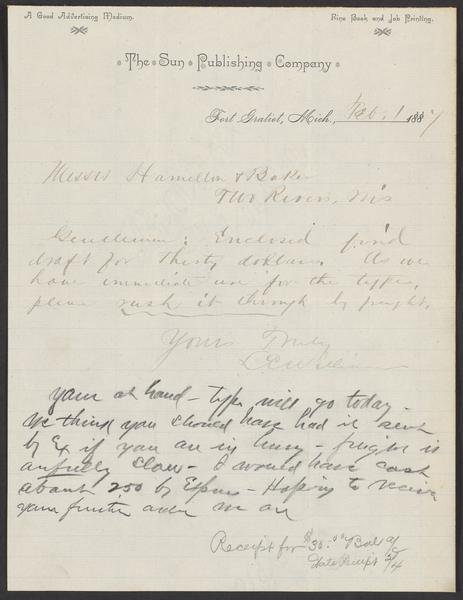 A Good Advertising Medium.
Fine Book and Job Printing.
The Sun Publishing Company
Fort Gratiot, Mich., Feb. 1 1887
Messrs Hamilton & Baker
Two Rivers, Wis
Gentlemen: Enclosed find
draft for thirty dollars. As we
have immediate use for the type,
please rush it through by freight.
Yours Truly
yours at hand - type will go today -
We think you should have had it sent
by Ex if you are in hurry - freight is
awfully slow - & would have cost
about 250 by Express - Hoping to receive
your further order we are
Receipt for $30.00 Bal of
Date Receipt 2/4